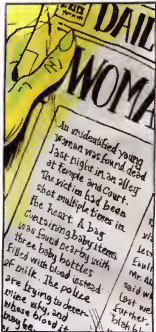 DAIL
WOMA
An unidentified young
woman was found dead
last night in an alley
at temple and court.
The victim had been
shot multiple times in
the heart. A bag
containing baby items
was found nearby with
three baby bottles
filled with blood instead
of milk. The police
are trying to deter-
mine why, and
whose blood it
may be.
said w